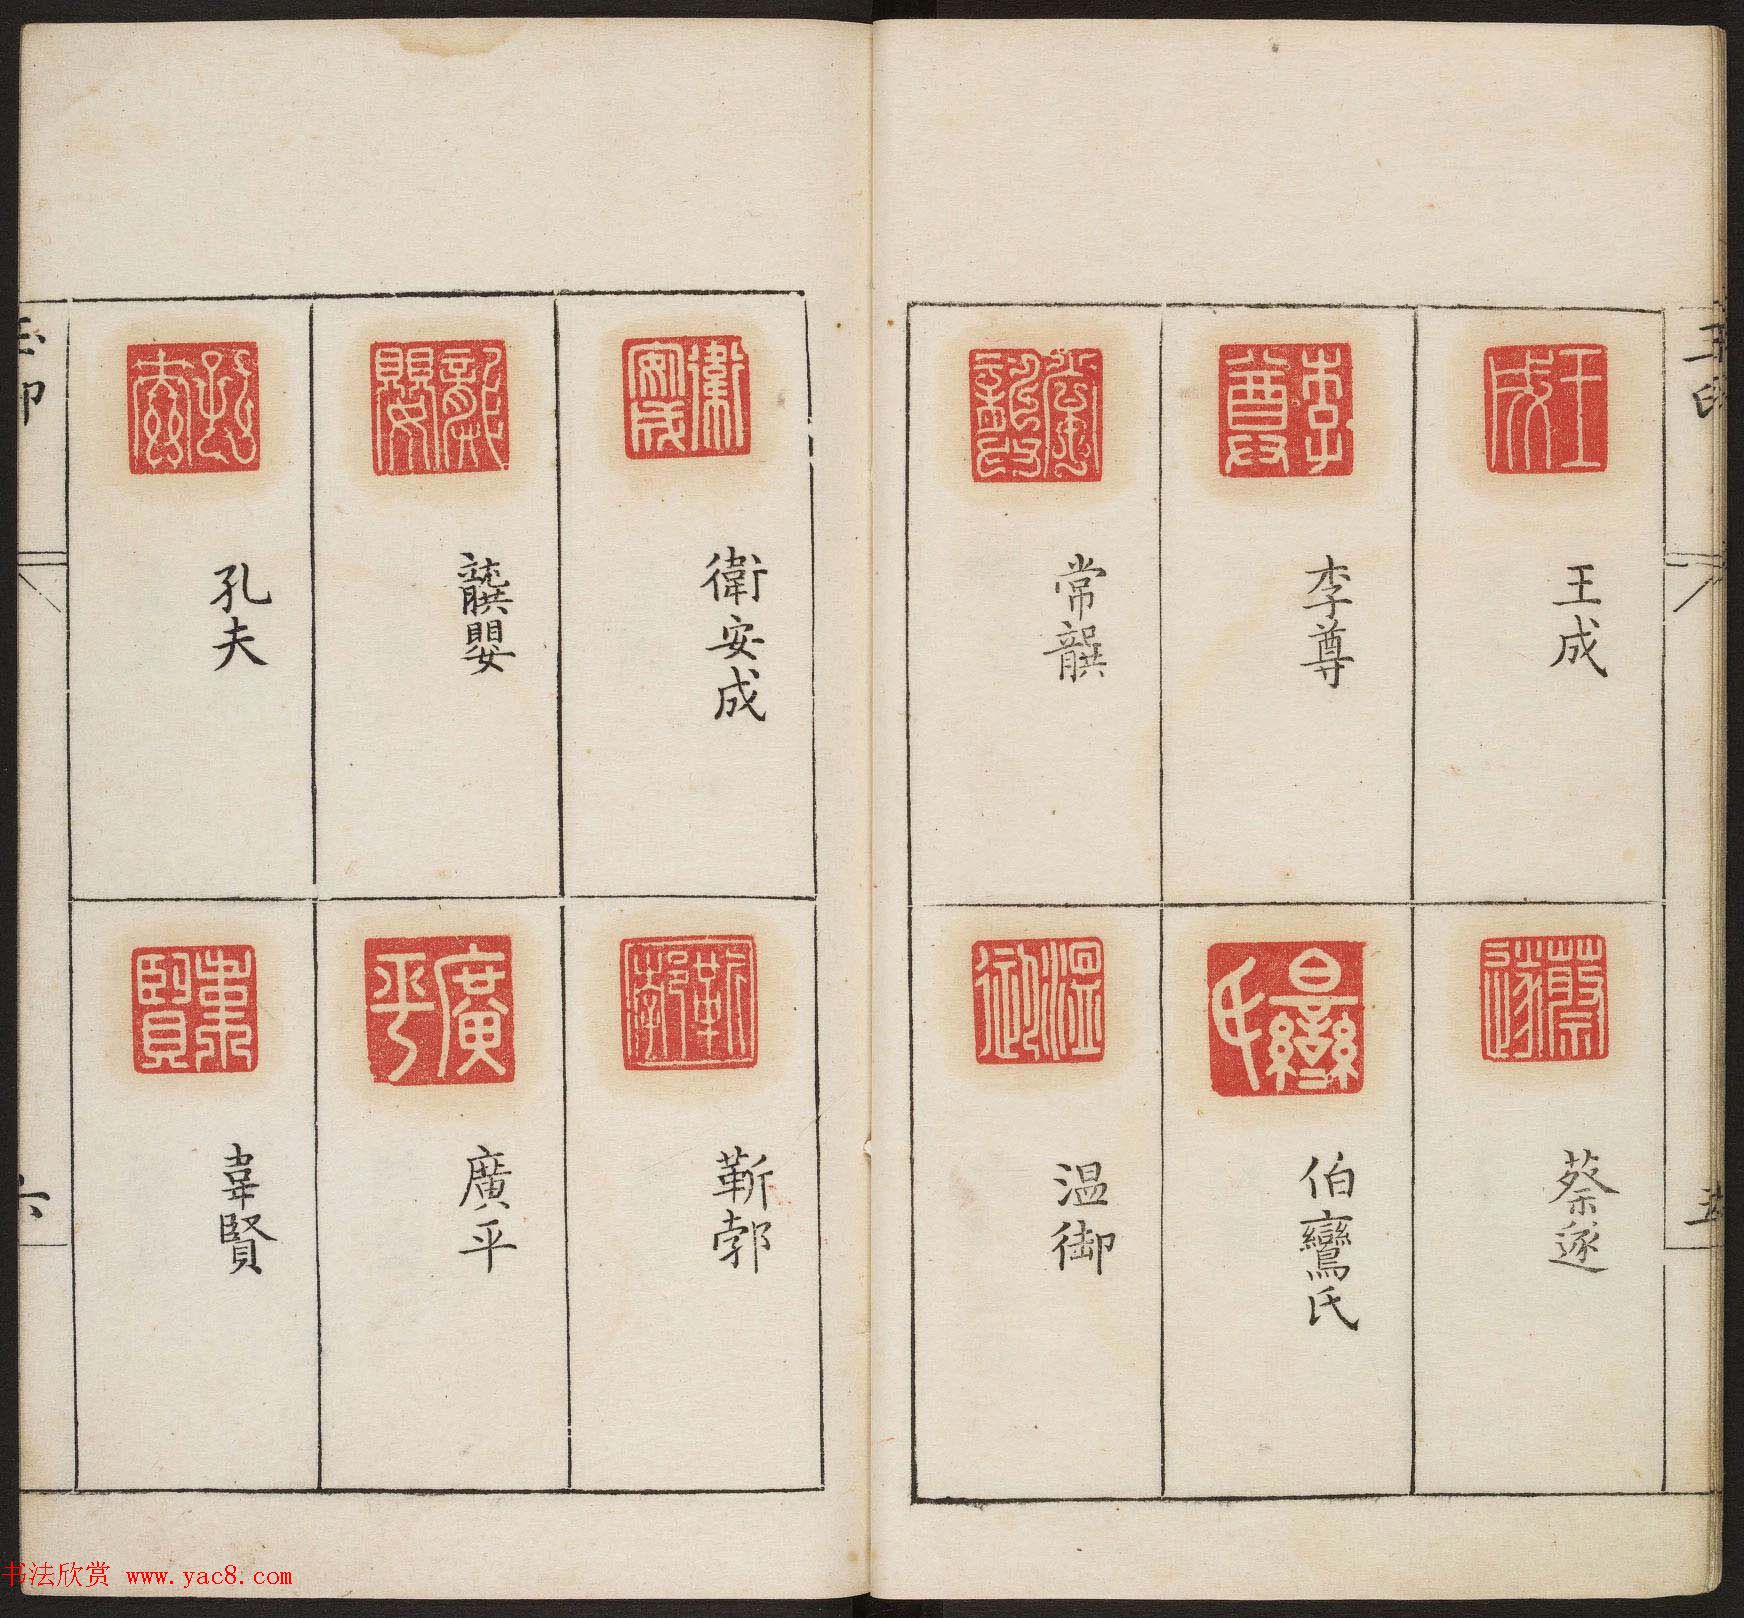 玉印
五
王成
李尊
常龔
蔡遂
伯鸞氏
温御
衛安成
龔嬰
孔夫
靳郭
廣平
韋賢
玉印
六
书法欣赏 www.yac8.com